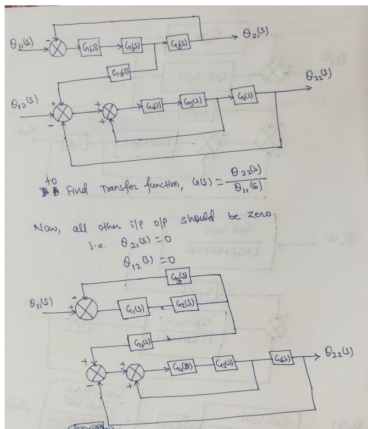 θ₂₁(s)
θ₁₁(s) - G₁(s) G₂(s) G₃(s)
G₇(s)
θ₂₂(s)
θ₁₂(s) + + - + + G₄(s) G₅(s) G₆(s)
to find Transfer function, G(s) = θ₂₂(s) / θ₁₁(s)
Now, all other i/p o/p should be zero,
i.e. θ₂₁(s) = 0
θ₁₂(s) = 0
G₃(s)
θ₁₁(s) - G₁(s) G₂(s)
+ - + + G₄(s) G₅(s) G₆(s) θ₂₂(s)